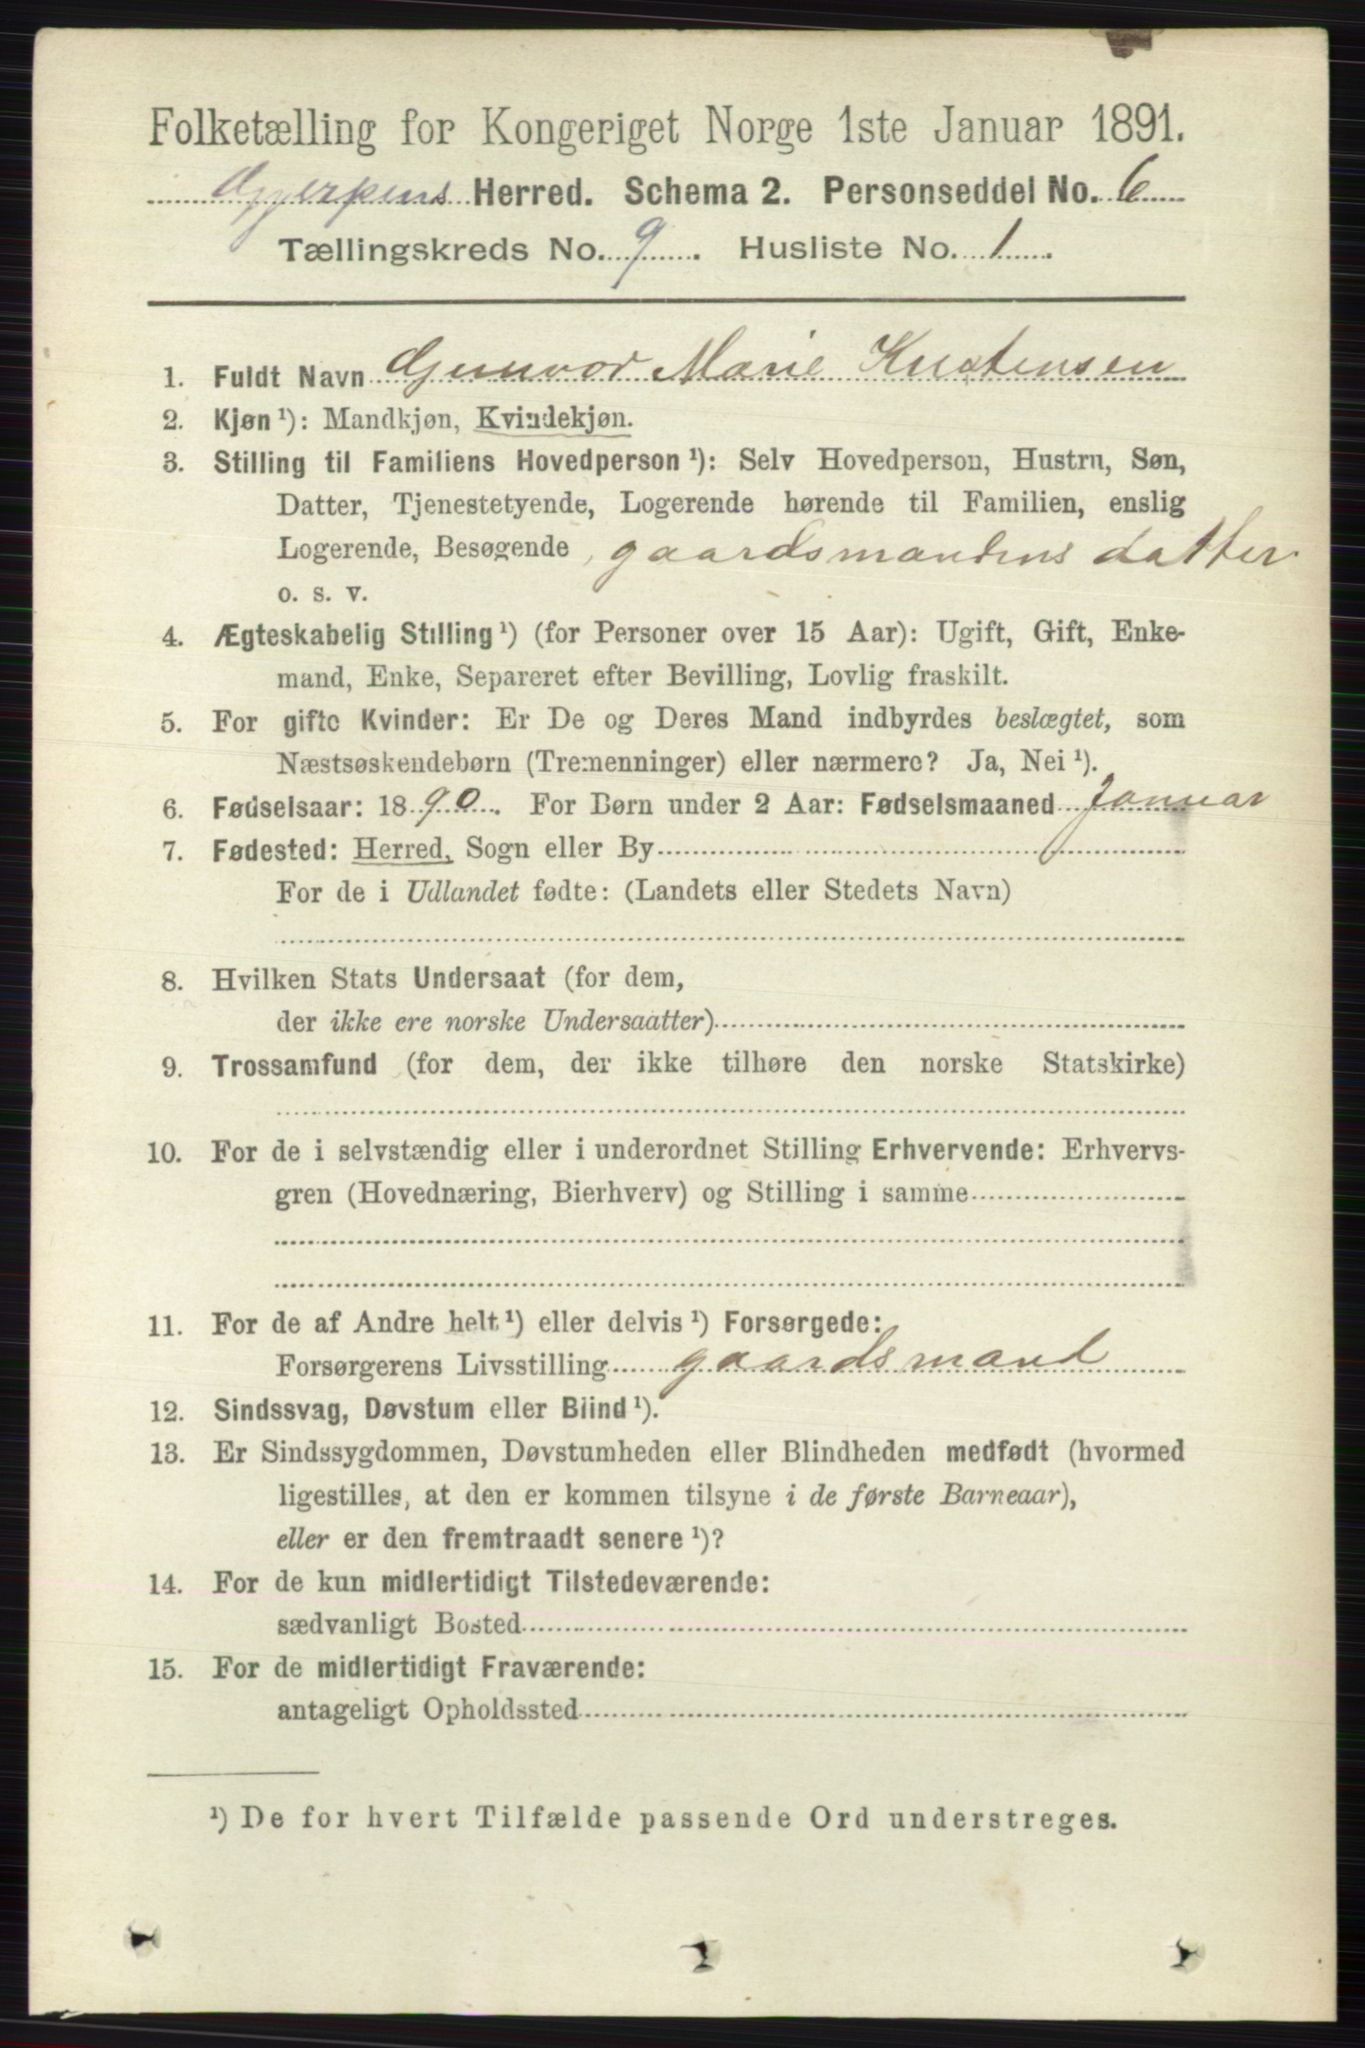 Folketælling for Kongeriget Norge 1ste Januar 1891.
Gjerpens Herred. Schema 2. Personseddel No. 6
Tællingskreds No. 9. Husliste No. 1.
1. Fuldt Navn Gunvor Marie Knutensen
2. Kjøn¹): Mandkjøn, Kvindekjøn.
3. Stilling til Familiens Hovedperson¹): Selv Hovedperson, Hustru, Søn,
Datter, Tjenestetyende, Logerende hørende til Familien, enslig
Logerende, Besøgende, gaardsmandens datter
o. s. v.
4. Ægteskabelig Stilling¹) (for Personer over 15 Aar): Ugift, Gift, Enke-
mand, Enke, Separeret efter Bevilling, Lovlig fraskilt.
5. For gifte Kvinder: Er De og Deres Mand indbyrdes beslægtet, som
Næstsøskendebørn (Tremenninger) eller nærmere? Ja, Nei¹).
6. Fødselsaar: 1890. For Børn under 2 Aar: Fødselsmaaned Januar
7. Fødested: Herred, Sogn eller By
For de i Udlandet fødte: (Landets eller Stedets Navn)
8. Hvilken Stats Undersaat (for dem,
der ikke ere norske Undersaatter)
9. Trossamfund (for dem, der ikke tilhøre den norske Statskirke)
10. For de i selvstændig eller i underordnet Stilling Erhvervende: Erhvervs-
gren (Hovednæring, Bierhverv) og Stilling i samme
11. For de af Andre helt¹) eller delvis¹) Forsørgede:
Forsørgerens Livsstilling gaardsmand
12. Sindssvag, Døvstum eller Blind¹).
13. Er Sindssygdommen, Døvstumheden eller Blindheden medfødt (hvormed
ligestilles, at den er kommen tilsyne i de første Barneaar),
eller er den fremtraadt senere¹)?
14. For de kun midlertidigt Tilstedeværende:
sædvanligt Bosted
15. For de midlertidigt Fraværende:
antageligt Opholdssted
¹) De for hvert Tilfælde passende Ord understreges.